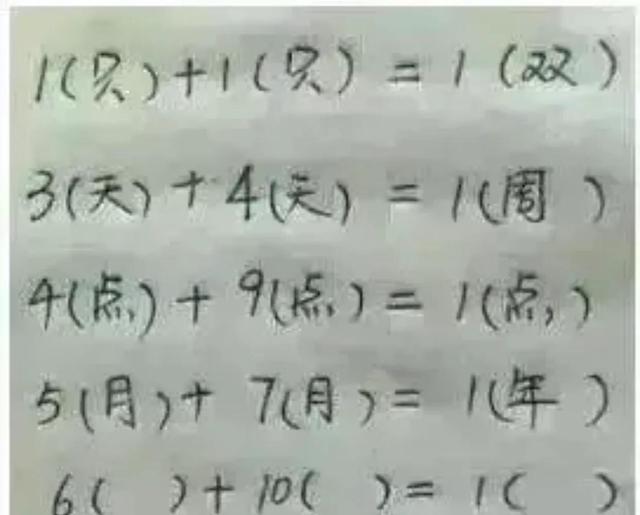 1(只)+1(只) = 1 (双)
3(天) + 4(天) = 1(周 )
4(点)+ 9(点)= 1(点)
5(月)+ 7(月)= 1(年 )
6( )+10( )= 1( )